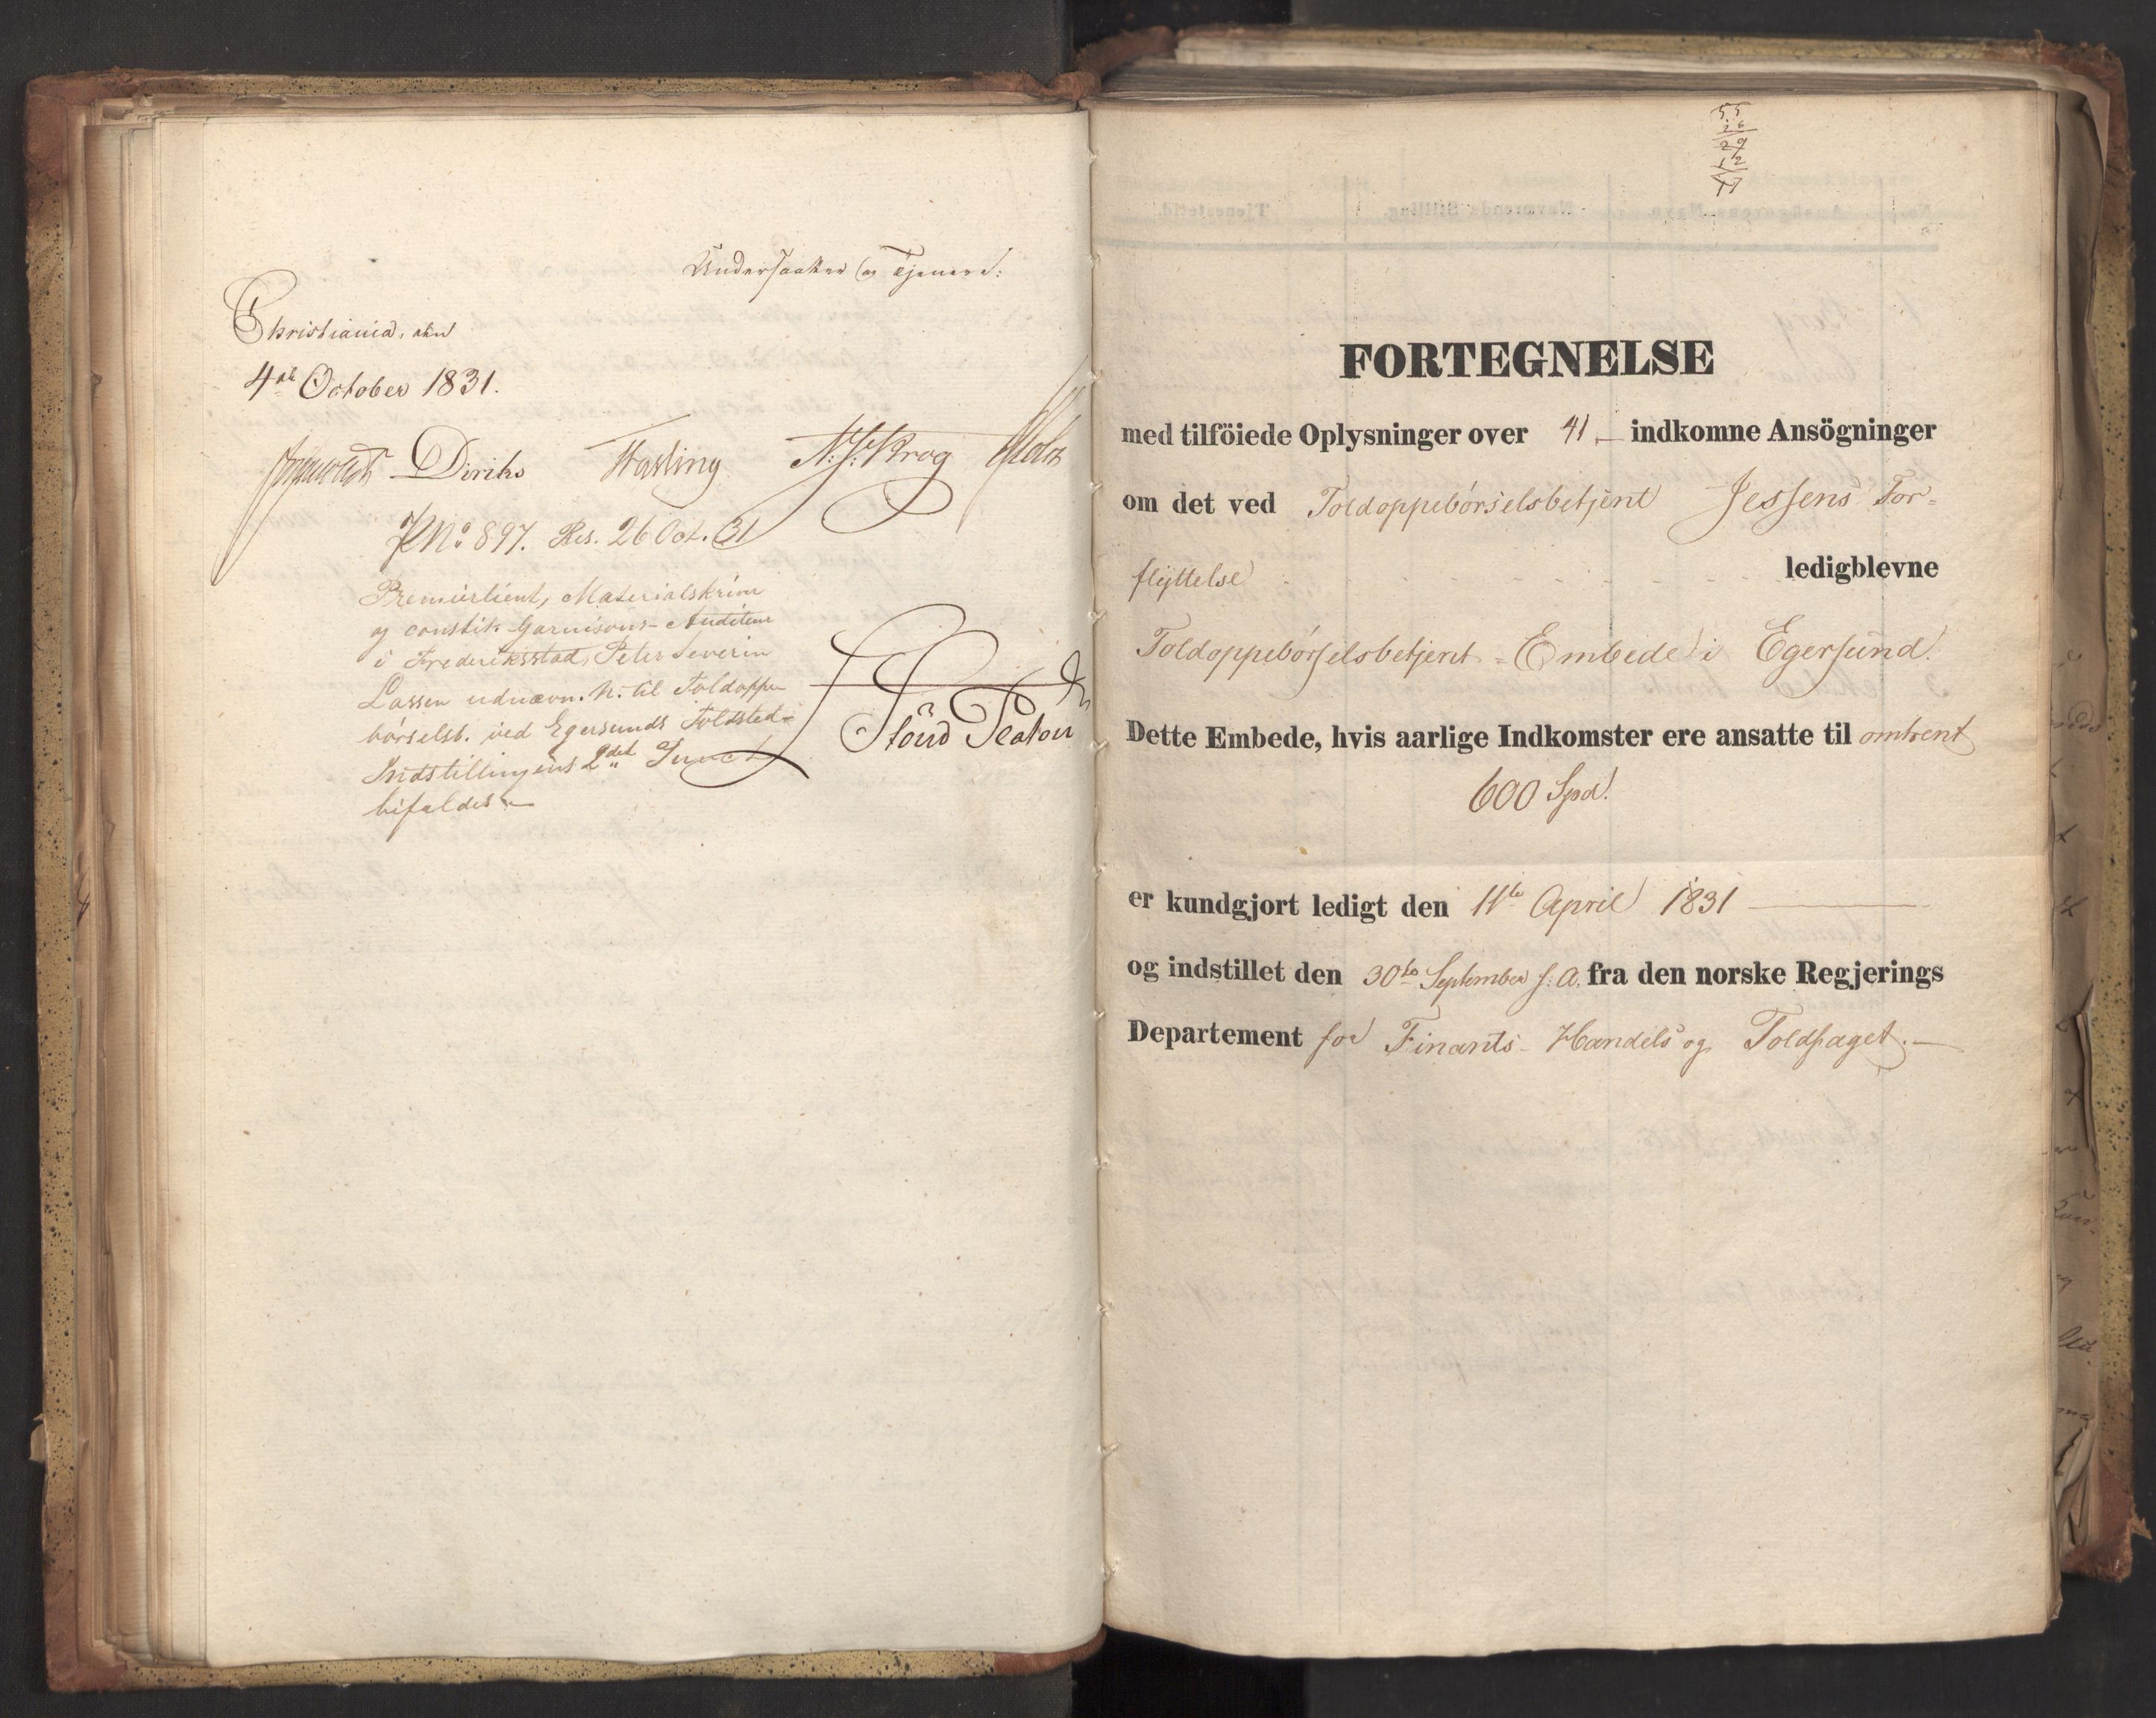 Undersaatter og Tjenere:
Christiania, den
4de October 1831.
Diriks Fasting N. J. Krog Holst
J No 897. Res. 26 Oct. 31
Premierlieut, Materialskriver
og constit. Garnisons-Auditeur
i Frederiksstad, Peter Severin
Lassen udnævn. N. til Toldoppe
börselsb. ved Egersunds Toldsted-
Indstillingens 2det Punct
bifaldes.
55
26
29
12
17
FORTEGNELSE
med tilföiede Oplysninger over 41 indkomne Ansögninger
om det ved Toldoppebörselsbetjent Jessens For-
flyttelse ledigblevne
Toldoppebörselsbetjent-Embede i Egersund.
Dette Embede, hvis aarlige Indkomster ere ansatte til omtrent
600 Spd.
er kundgjort ledigt den 11te April 1831
og indstillet den 30te September s: A. fra den norske Regjerings
Departement for Finants- Handels og Toldfaget.